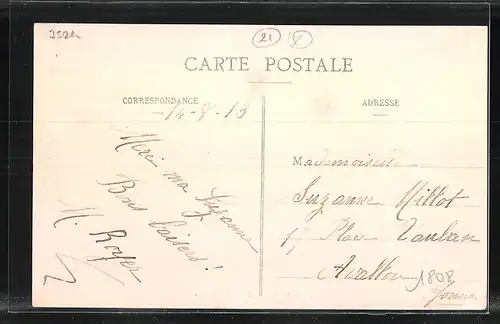 352A
21
CARTE POSTALE
CORRESPONDANCE
14-9-13
Merci ma Suzanne
Bons baisers!
M. Royer
ADRESSE
Mademoiselle
Suzanne Millot
17 Place Vauban
Avallon
1808
Yonne